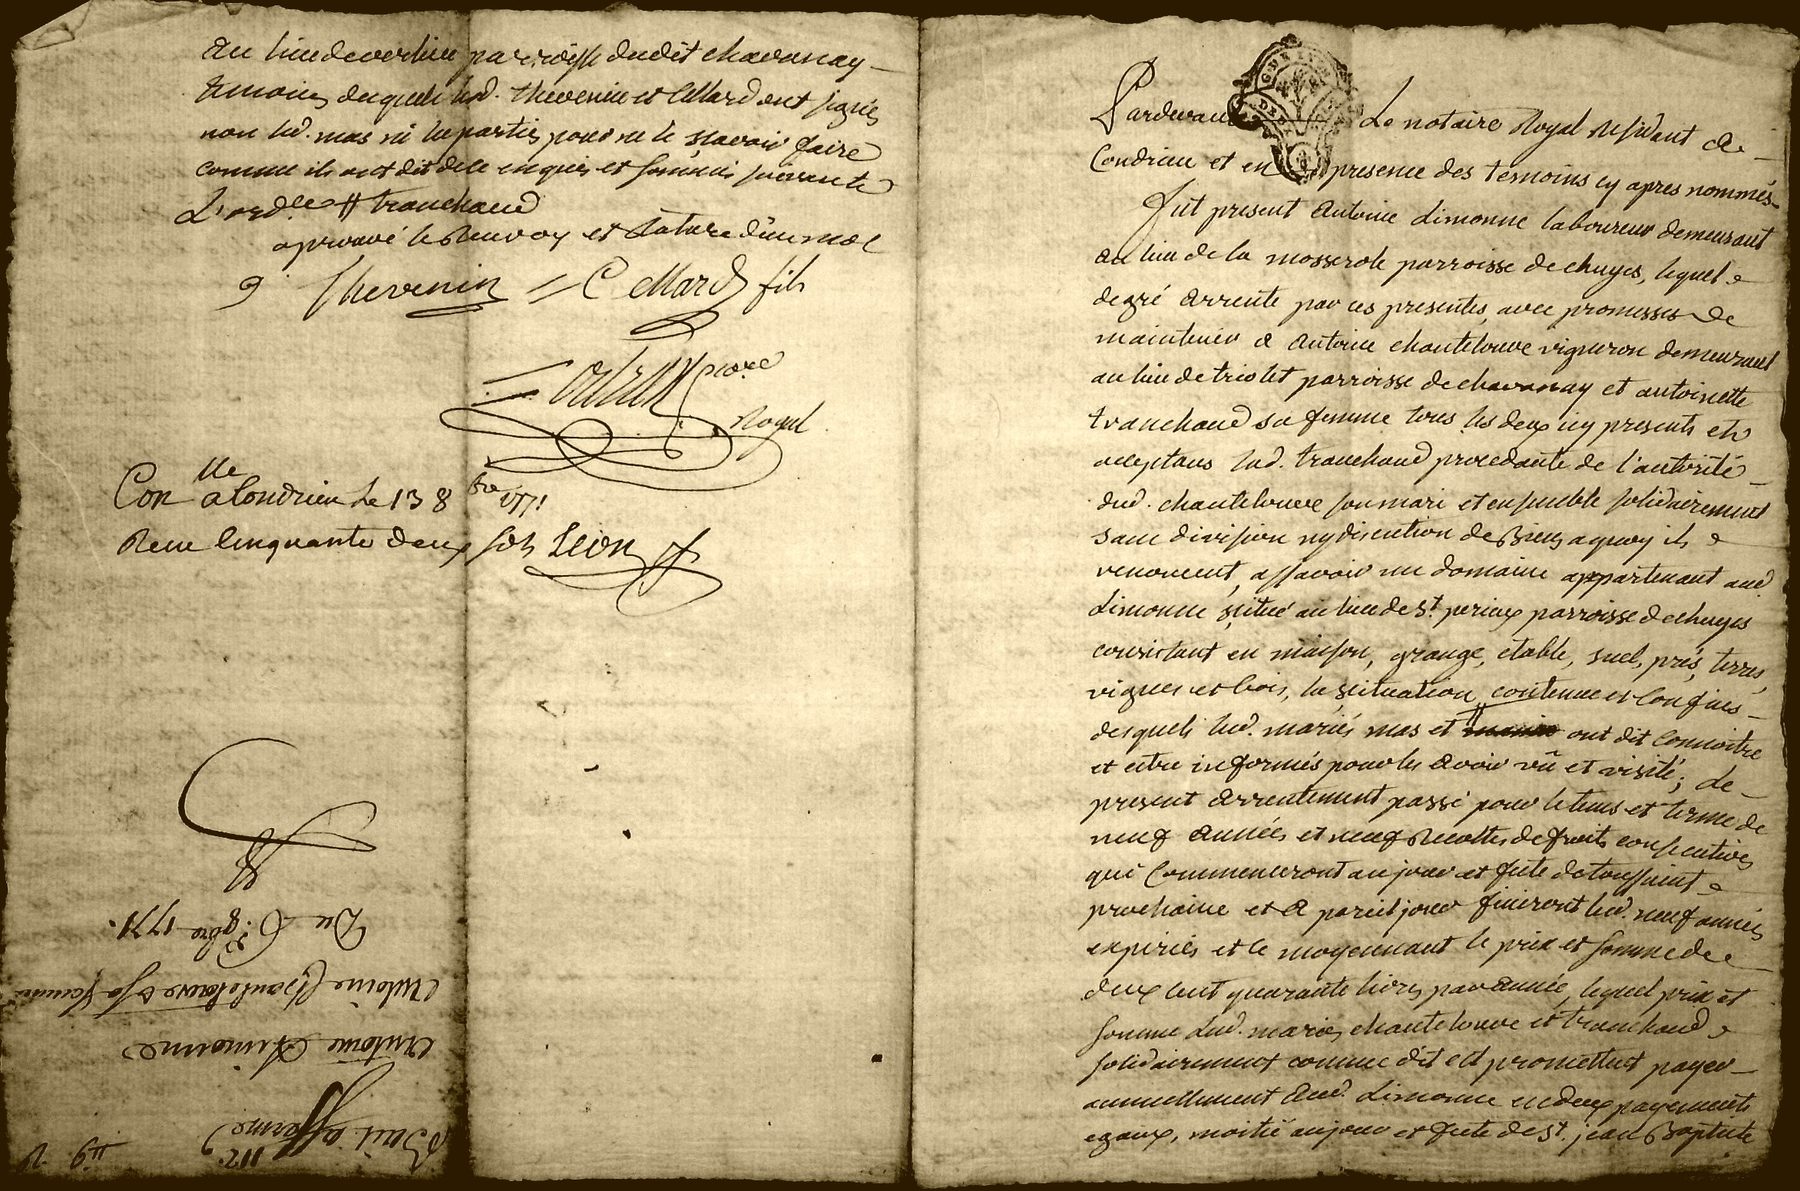 au lieu de verlieu parroisse dudit chavanay
temoins desquels led. thevenin et Cellard ont signés
non led. mas ni les parties pour ne le sçavoir faire
comme ils ont dit de ce enquis et sommés suivant
L'ord.ce # tranchand
aprouvé le Renvoy et Rature d'un mot
Thevenin = Cellard fils
Royal
Con.lle a Condrieu le 13 8bre 1771
Reçu Cinquante deux sols Leon
Du 6.e 8bre 1771.
Antoine Chantelouve & sa femme
Antoine Limonne
Bail afferme
Pardevant Le notaire Royal residant a
Condrieu et en presence des temoins cy apres nommés
fut present Antoine Limonne laboureur demeurant
au lieu de la mosserole parroisse de chuyes, lequel
de gré arrente par ces presentes, avec promesses de
maintenir a Antoine chantelouve vigneron demeurant
au lieu de triolet parroisse de chavanay et antoinette
tranchand sa femme tous les deux icy presents et
acceptans lad. tranchand procedante de l'autorité
dud. chantelouve son mari et ensemble solidairement
sans division ny discution de Biens a quoy ils
renoncent, assavoir un domaine appartenant aud.
Limonne situé au lieu de St. perieux parroisse de chuyes
consistant en maison, grange, étable, suel, prés, terres,
vignes et bois, la scituation, contenue et Confins
desquels led. mariés mas et ont dit Connoitre
et etre informés pour les avoir vû et visité; de
present arrentement passé pour le tems et terme de
neuf années et neuf Recoltes de fruits consecutives
qui Commenceront au jour et fete de toussaint
prochaine et a pareil jour finiront led. neuf années
expirées et ce moyennant le prix et somme de
deux cent quarante livres par année, lequel prix et
somme Led. mariés chantelouve et tranchand
solidairement comme dit est promettent payer
annuellement aud. Limonne en deux payements
egaux, moitié au jour et fete de St. jean Baptiste